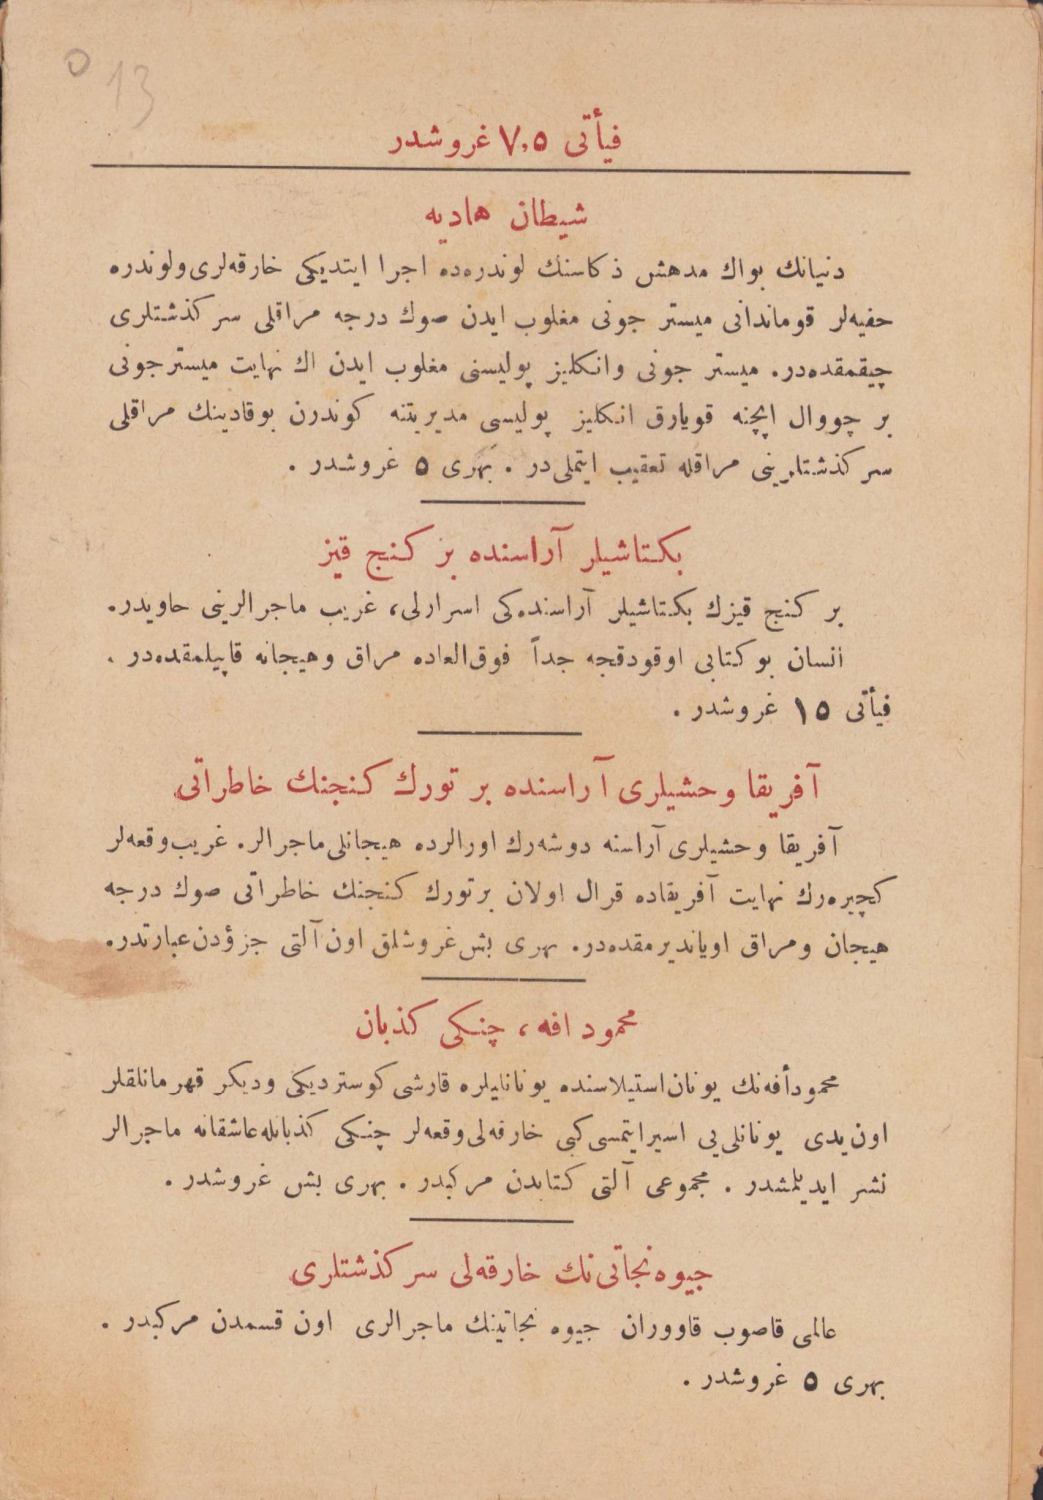 13
فيأتی ٧,٥ غروشدر
شيطان هاديه
دنيانك بواك مدهش ذكاسنك لوندره‌ده اجرا ايتديكی خارقه‌لری ولوندره
خفيه‌لر قوماندانی ميستر جونی مغلوب ايدن صوك درجه مراقلی سركذشتلری
چيقمقده‌در. ميستر جونی وانكليز پوليسنی مغلوب ايدن اك نهايت ميستر جونی
بر چووال ايچنه قويارق انكليز پوليسی مديريتنه كوندرن بوقادينك مراقلی
سركذشتلرينی مراقله تعقيب ايتملی‌در . بهری ٥ غروشدر .
بكتاشيلر آراسنده بر كنج قيز
بر كنج قيزك بكتاشيلر آراسنده‌كی اسرارلی، غريب ماجرالرينی حاويدر.
انسان بو كتابی اوقودقجه جداً فوق‌العاده مراق وهيجانه قاپيلمقده‌در .
فيأتی ١٥ غروشدر .
آفريقا وحشيلری آراسنده بر تورك كنجنك خاطراتی
آفريقا وحشيلری آراسنه دوشه‌رك اورالرده هيجانلی ماجرالر. غريب وقعه‌لر
كچيره‌رك نهايت آفريقاده قرال اولان بر تورك كنجنك خاطراتی صوك درجه
هيجان ومراق اوياندير مقده‌در. بهری بش غروشلق اون آلتی جزؤدن عبارتدر.
محمود افه ، چنكی كذبان
محمود أفه‌نك يونان استيلاسنده يونانليلره قارشی كوسترديكی وديكر قهرمانلقلر
اون يدی يونانلی‌يی اسير ايتمسی كبی خارقه‌لی وقعه‌لر چنكی كذبانله عاشقانه ماجرالر
نشر ايديلمشدر . مجموعی آلتی كتابدن مركبدر . بهری بش غروشدر .
جيوه نجاتی نك خارقه‌لی سركذشتلری
عالمی قاصوب قاووران جيوه نجاتينك ماجرالری اون قسمدن مركبدر .
بهری ٥ غروشدر .